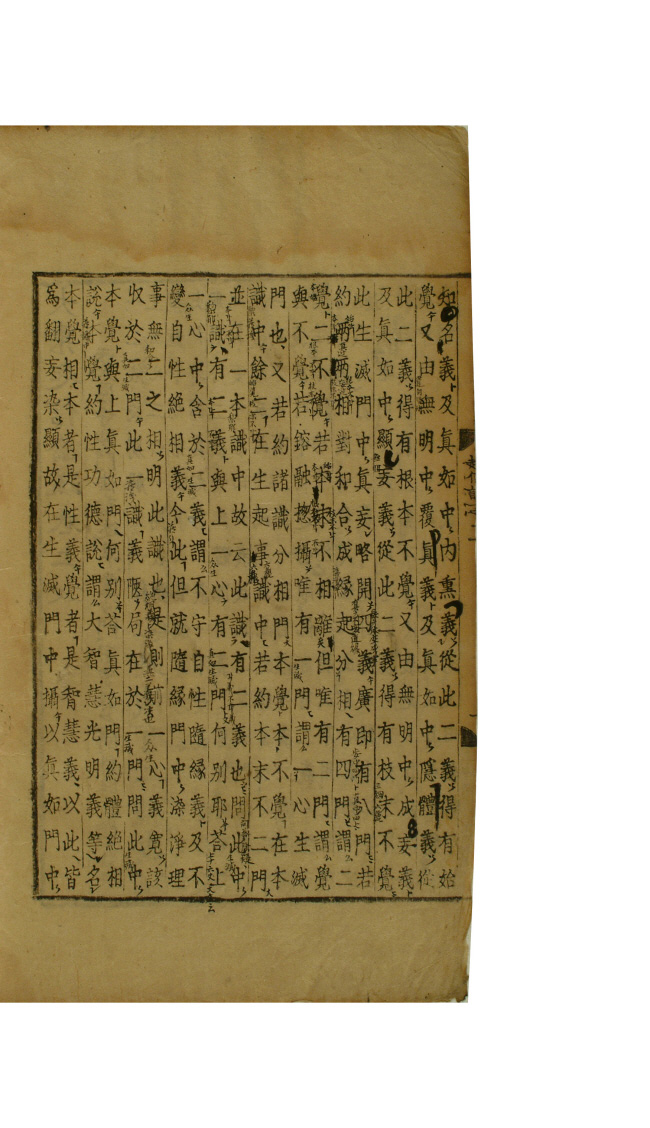 知名義及眞如中內熏義從此二義得有始
覺又由無明中覆眞義及眞如中隱體義從
此二義得有根本不覺又由無明中成妄義
及眞如中顯妄義從此二義得有枝末不覺
此生滅門中眞妄略開四義廣即有八門若
約兩兩相對和合成緣起分相有四門謂二
覺二不覺若本末不相離但唯有二門謂覺
與不覺若鎔融揔攝唯有一門謂一心生滅
門也又若約諸識分相門本覺本不覺在本
識中餘二在生起事識中若約本末不二門
並在一本識中故云此識有二義也問此中
一識有二義與上一心有二門何別耶答上
一心中含於二義謂不守自性隨緣義及不
變自性絕相義今此但就隨緣門中染淨理
事無二之相明此識也是則前一心義寬該
收於二門此一識義陿局在於一門問此中
本覺與上眞如門何別答眞如門約體絕相
說本覺約性功德說謂大智慧光明義等名
本覺相本者是性義覺者是智慧義以此皆
爲翻妄染顯故在生滅門中攝以眞如門中